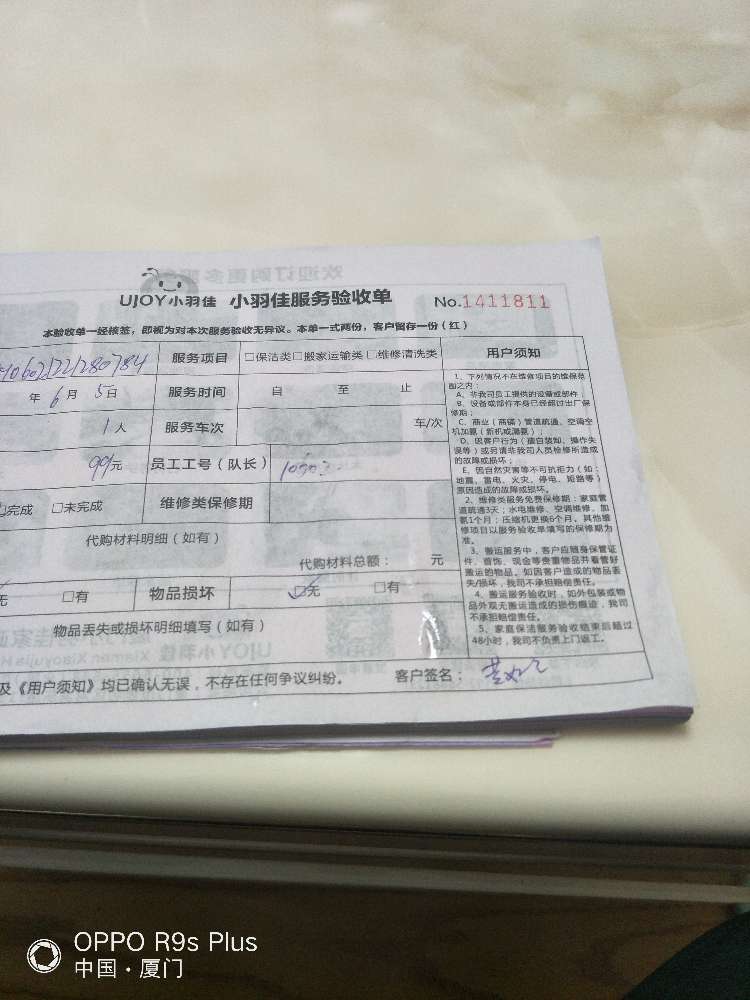 UJOY小羽佳 小羽佳服务验收单 No.1411811
本验收单一经核签，即视为对本次服务验收无异议。本单一式两份，客户留存一份（红）
服务项目 □保洁类□搬家运输类□维修清洗类
年6月5日 服务时间 自 至 止
1人 服务车次 车/次
99元 员工工号（队长）
完成 □未完成 维修类保修期
代购材料明细（如有）
代购材料总额： 元
无 □有 物品损坏 ☑无 □有
物品丢失或损坏明细填写（如有）
及《用户须知》均已确认无误，不存在任何争议纠纷。 客户签名：
用户须知
1、下列情况不在维修项目的维保范
围之内：
A、非我司员工提供的设备或部件；
B、设备或部件本身已经超过出厂保
修期；
C、商业（商铺）管道疏通、空调空
机加氨（新机或漏氨）；
D、因客户行为（擅自装卸、操作失
误等）或另请非我司人员检修所造成
的故障或损坏；
E、因自然灾害等不可抗拒力（如：
地震、雷电、火灾、停电、短路等）
原因造成的故障或损坏。
2、维修类服务免费保修期：家庭管
道疏通3天；水电维修、空调维修、加
氨1个月；压缩机更换6个月。其他维
修项目以服务验收单填写的保修期为
准。
3、搬运服务中，客户应随身保管证
件、首饰、现金等贵重物品并看管好
搬运的物品。如因客户造成的物品丢
失/损坏，我司不承担赔偿责任。
4、搬运服务验收时，如外包装或物
品外观无搬运造成的损伤痕迹，我司
不承担赔偿责任。
5、家庭保洁服务验收结束后超过
48小时，我司不负责上门返工。
OPPO R9s Plus
中国·厦门